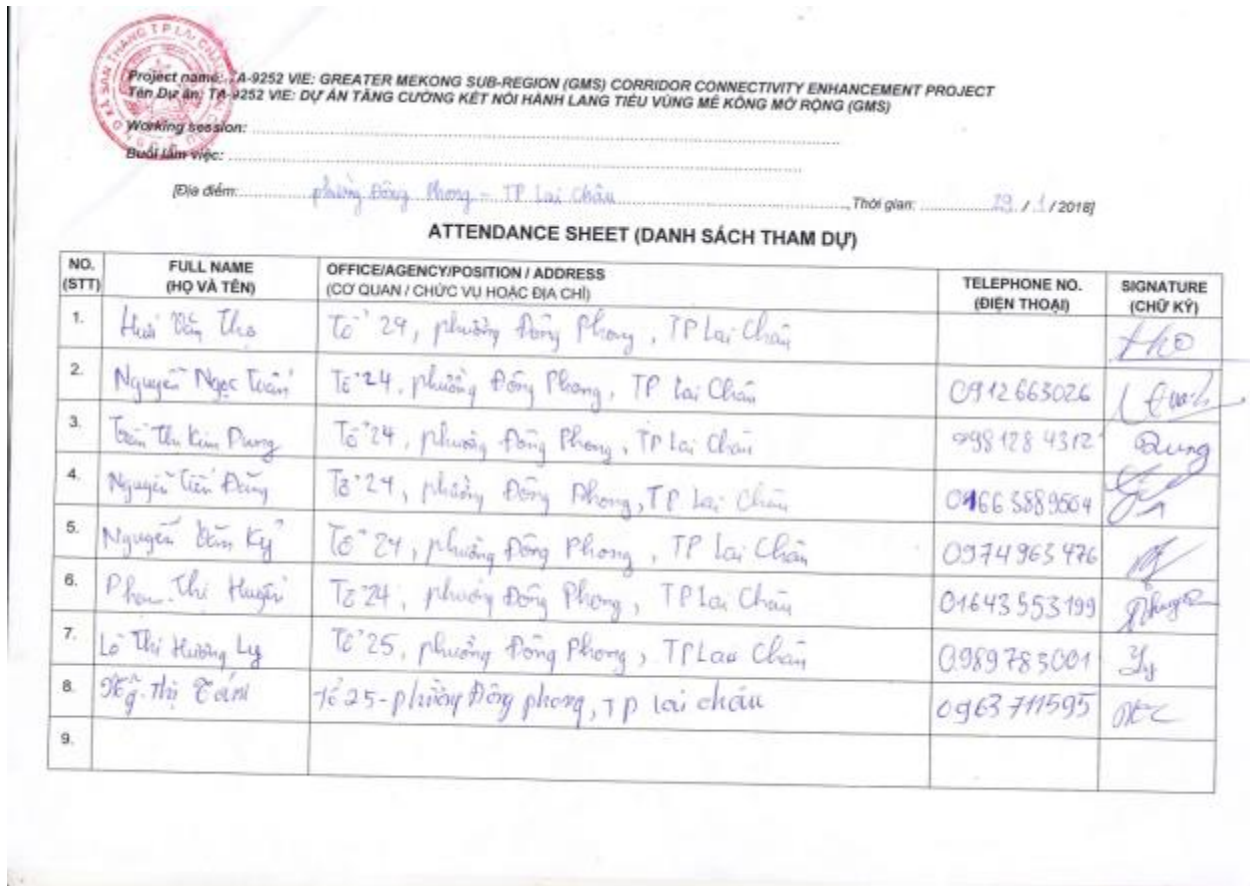 SAN THÀNG T.P LAI CHÂU
Project name: TA-9252 VIE: GREATER MEKONG SUB-REGION (GMS) CORRIDOR CONNECTIVITY ENHANCEMENT PROJECT
Tên Dự án: TA-9252 VIE: DỰ ÁN TĂNG CƯỜNG KẾT NỐI HÀNH LANG TIỂU VÙNG MÊ KÔNG MỞ RỘNG (GMS)
Working session:
Buổi làm việc:
[Địa điểm: phường Đông Phong - TP Lai Châu, Thời gian: 29 / 1 / 2018]
ATTENDANCE SHEET (DANH SÁCH THAM DỰ)
NO. (STT) FULL NAME (HỌ VÀ TÊN) OFFICE/AGENCY/POSITION / ADDRESS (CƠ QUAN / CHỨC VỤ HOẶC ĐỊA CHỈ) TELEPHONE NO. (ĐIỆN THOẠI) SIGNATURE (CHỮ KÝ)
1. Văn Thọ Tổ 24, phường Đông Phong, TP Lai Châu
2. Nguyễn Ngọc Tổ 24, phường Đông Phong, TP Lai Châu 0912663026
3. Trần Thị Kim Dung Tổ 24, phường Đông Phong, TP Lai Châu 098128 4312 Dung
4. Nguyễn Tiến Tổ 24, phường Đông Phong, TP Lai Châu
5. Nguyễn Văn Kỷ Tổ 24, phường Đông Phong, TP Lai Châu 0974963476
6. Thị Huyền Tổ 24, phường Đông Phong, TP Lai Châu 01643553199
7. Lò Thị Hương Ly Tổ 25, phường Đông Phong, TP Lai Châu 0989783001 Ly
8. Thị Tổ 25 - phường Đông phong, TP lai châu 0963711595
9.